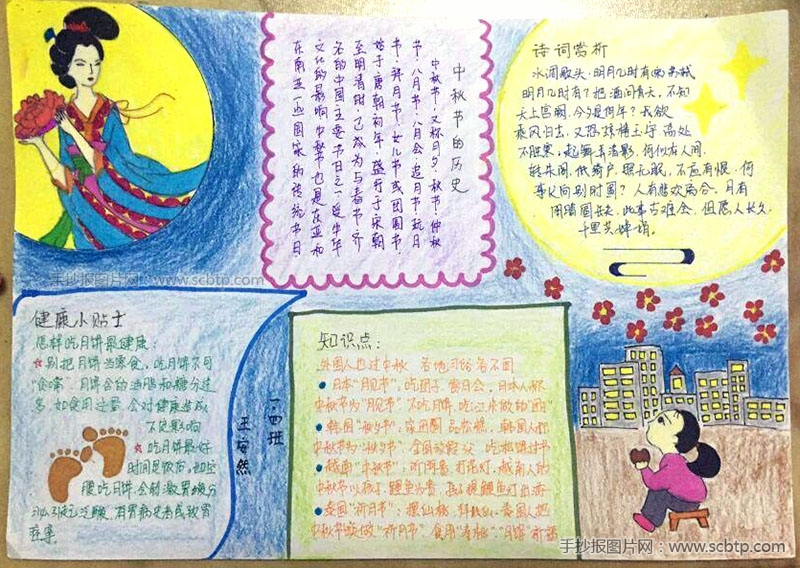 中秋节的历史
中秋节，又称月夕、秋节、仲秋
节、八月节、八月会、追月节、玩月
节、拜月节、女儿节或团圆节，
始于唐朝初年，盛行于宋朝，
至明清时，已成为与春节齐
名的中国主要节日之一。受中华
文化的影响，中秋节也是东亚和
东南亚一些国家的传统节日
诗词赏析
水调歌头·明月几时有
明月几时有？把酒问青天，不知
天上宫阙，今夕是何年？我欲
乘风归去，又恐琼楼玉宇，高处
不胜寒，起舞弄清影，何似在人间。
转朱阁，低绮户，照无眠，不应有恨，何
事长向别时圆？人有悲欢离合，月有
阴晴圆缺，此事古难全，但愿人长久，
千里共婵娟。
手抄报图片网：www.scbtp.com
健康小贴士
怎样吃月饼最健康：
别把月饼当零食，吃月饼不可
月饼含的油脂和糖分过
多，如食用过量，会对健康造成
不良影响
吃月饼最好
时间是饭后，如空
腹吃月饼，会刺激胃酸分
泌
一.四班
王安然
知识点：
外国人也过中秋 各地习俗各不同
日本“月见节”：吃团子 赏月会，日本人称
中秋节为“月见节”不吃月饼，吃江米做的“团子”
韩国“秋夕节”：家团圆 品松糕，韩国人把
中秋节为“秋夕节”，全国放假 吃松饼过节
越南“中秋节”：听 打花灯，越南人的
中秋节以孩子 鲤鱼为
泰国“祈月节”：摆仙桃 拜 泰国人把
中秋节 做“祈月节” 食用“寿桃”“月饼”祈福
手抄报图片网：www.scbtp.com